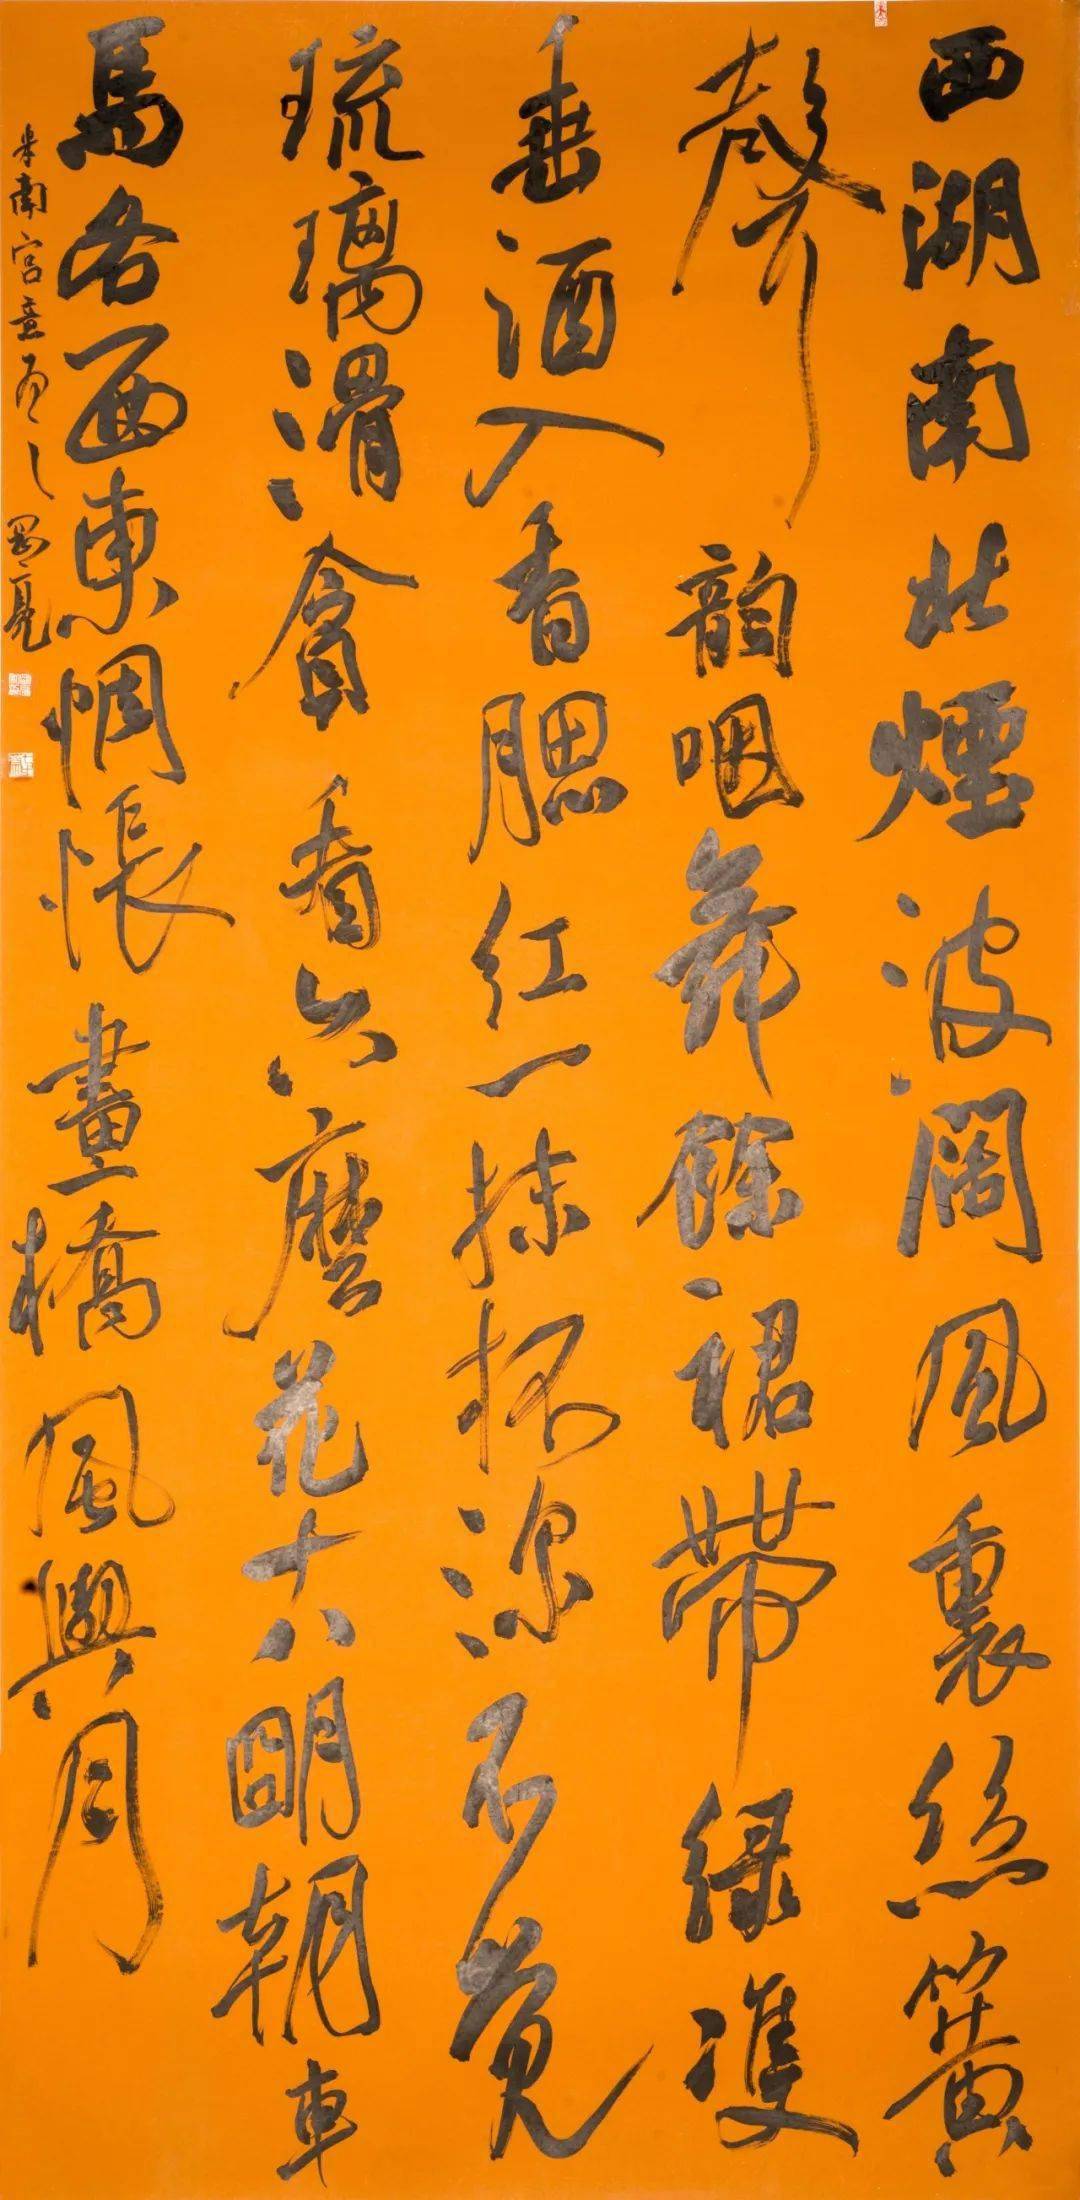 西湖南北煙波闊風裏絲簧
聲韵咽舞餘裙帶綠雙
垂酒入香腮紅一抹杯深不覺
琉璃滑貪看六麽花十八朙朝車
馬各西東惆悵畫橋風與月
米南宮意為之 亮